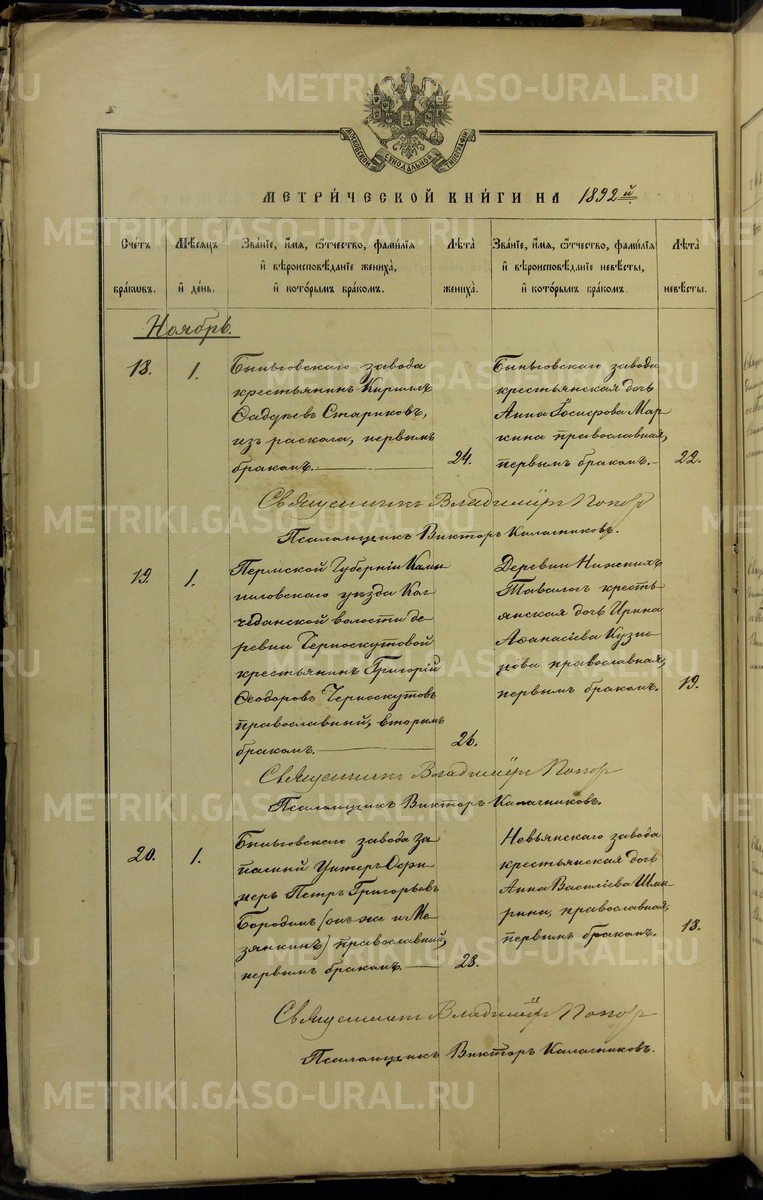 METRIKI.GASO-URAL.RU
СИНОДАЛЬНОЙ
МЕТРИ́ЧЕСКОЙ КНИ́ГИ НА 1892й
Сче́тъ бра́кѡвъ.
Мѣ́сяцъ и҆ де́нь.
Зва́нїе, и҆́мя, ѻ҆́тчество, фами́лїя
и҆ вѣроисповѣ́данїе жениха̀,
и҆ кото́рымъ бра́комъ.
Лѣ́та
жениха̀.
Зва́нїе, и҆́мя, ѻ҆́тчество, фами́лїя
и҆ вѣроисповѣ́данїе невѣ́сты,
и҆ кото́рымъ бра́комъ.
Лѣ́та
невѣ́сты.
Ноябрь.
18.
1.
Быньговскаго завода
крестьянинъ Кириллъ
Ѳадѣевъ Стариковъ,
изъ раскола, первымъ
бракомъ.
24.
Быньговскаго завода
крестьянская дочь
Анна Іосифова Мар
кина православная,
первымъ бракомъ.
22.
Священникъ Владиміръ Попов
Псаломщикъ Викторъ Калачниковъ.
19.
1.
Пермской Губерніи Камы
шловскаго уѣзда Кол
чеданской волости де
ревни Черноскутовой
крестьянинъ Григорій
Ѳеодоровъ Черноскутовъ
православный, вторымъ
бракомъ.
26.
Деревни Нижнихъ
Тавологъ кресть
янская дочь Ирина
Аѳанасіева Кузне
цова православная,
первымъ бракомъ.
19.
Священникъ Владиміръ Попов
Псаломщикъ Викторъ Калачниковъ.
20.
1.
Быньговскаго завода за
пасный Унтеръ Офи
церъ Петръ Григорьевъ
Бородинъ (онъ же и Ме
зянкинъ) православный,
первымъ бракомъ.
28.
Невьянскаго завода
крестьянская дочь
Анна Василіева Шма
рина, православная,
первымъ бракомъ.
18.
Священникъ Владиміръ Попов
Псаломщикъ Викторъ Калачниковъ.
METRIKI.GASO-URAL.RU